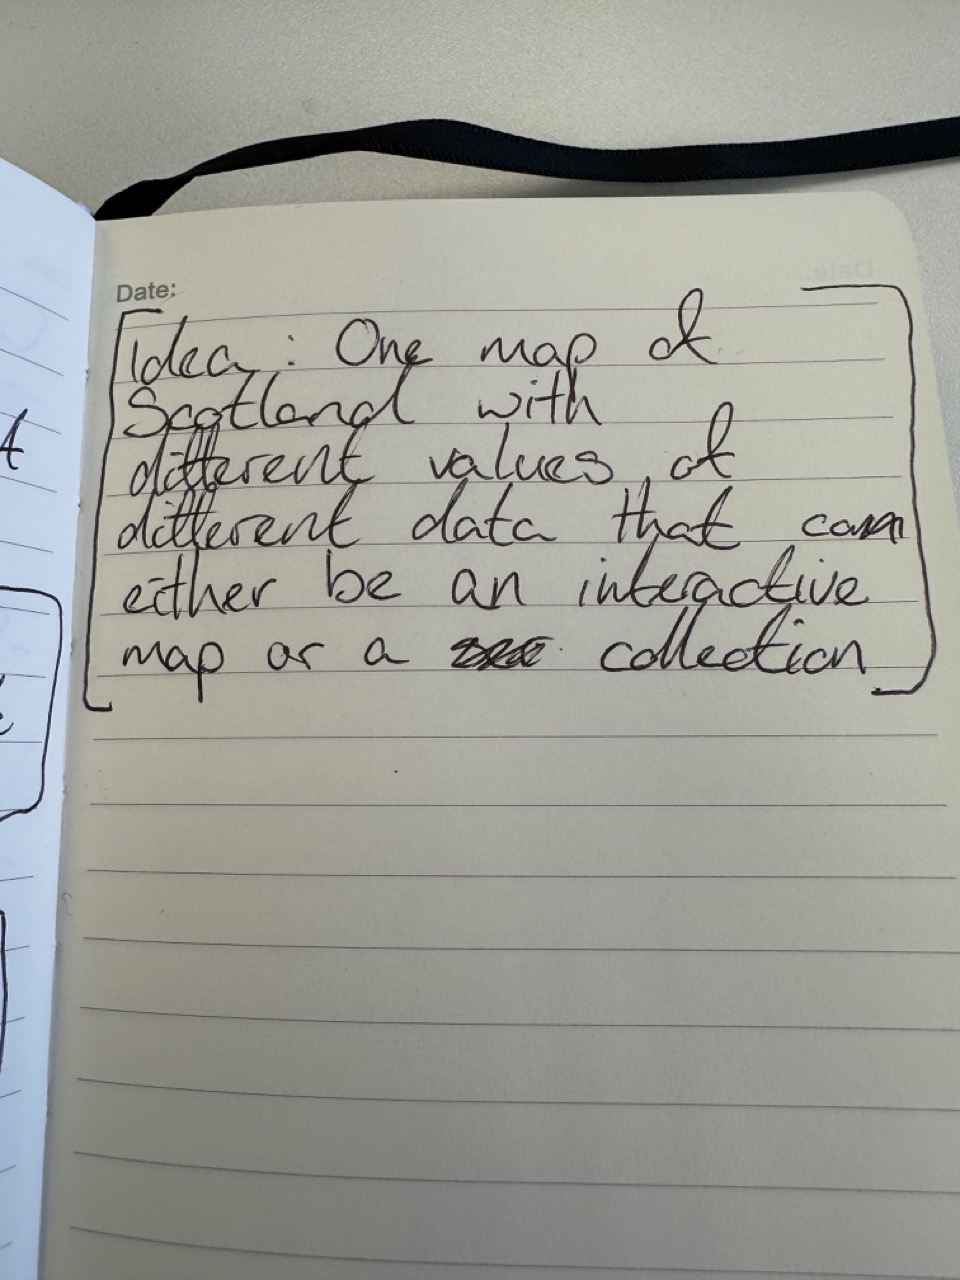 Date:
Idea: One map of
Scotland with
different values of
different data that can
either be an interactive
map or a collection